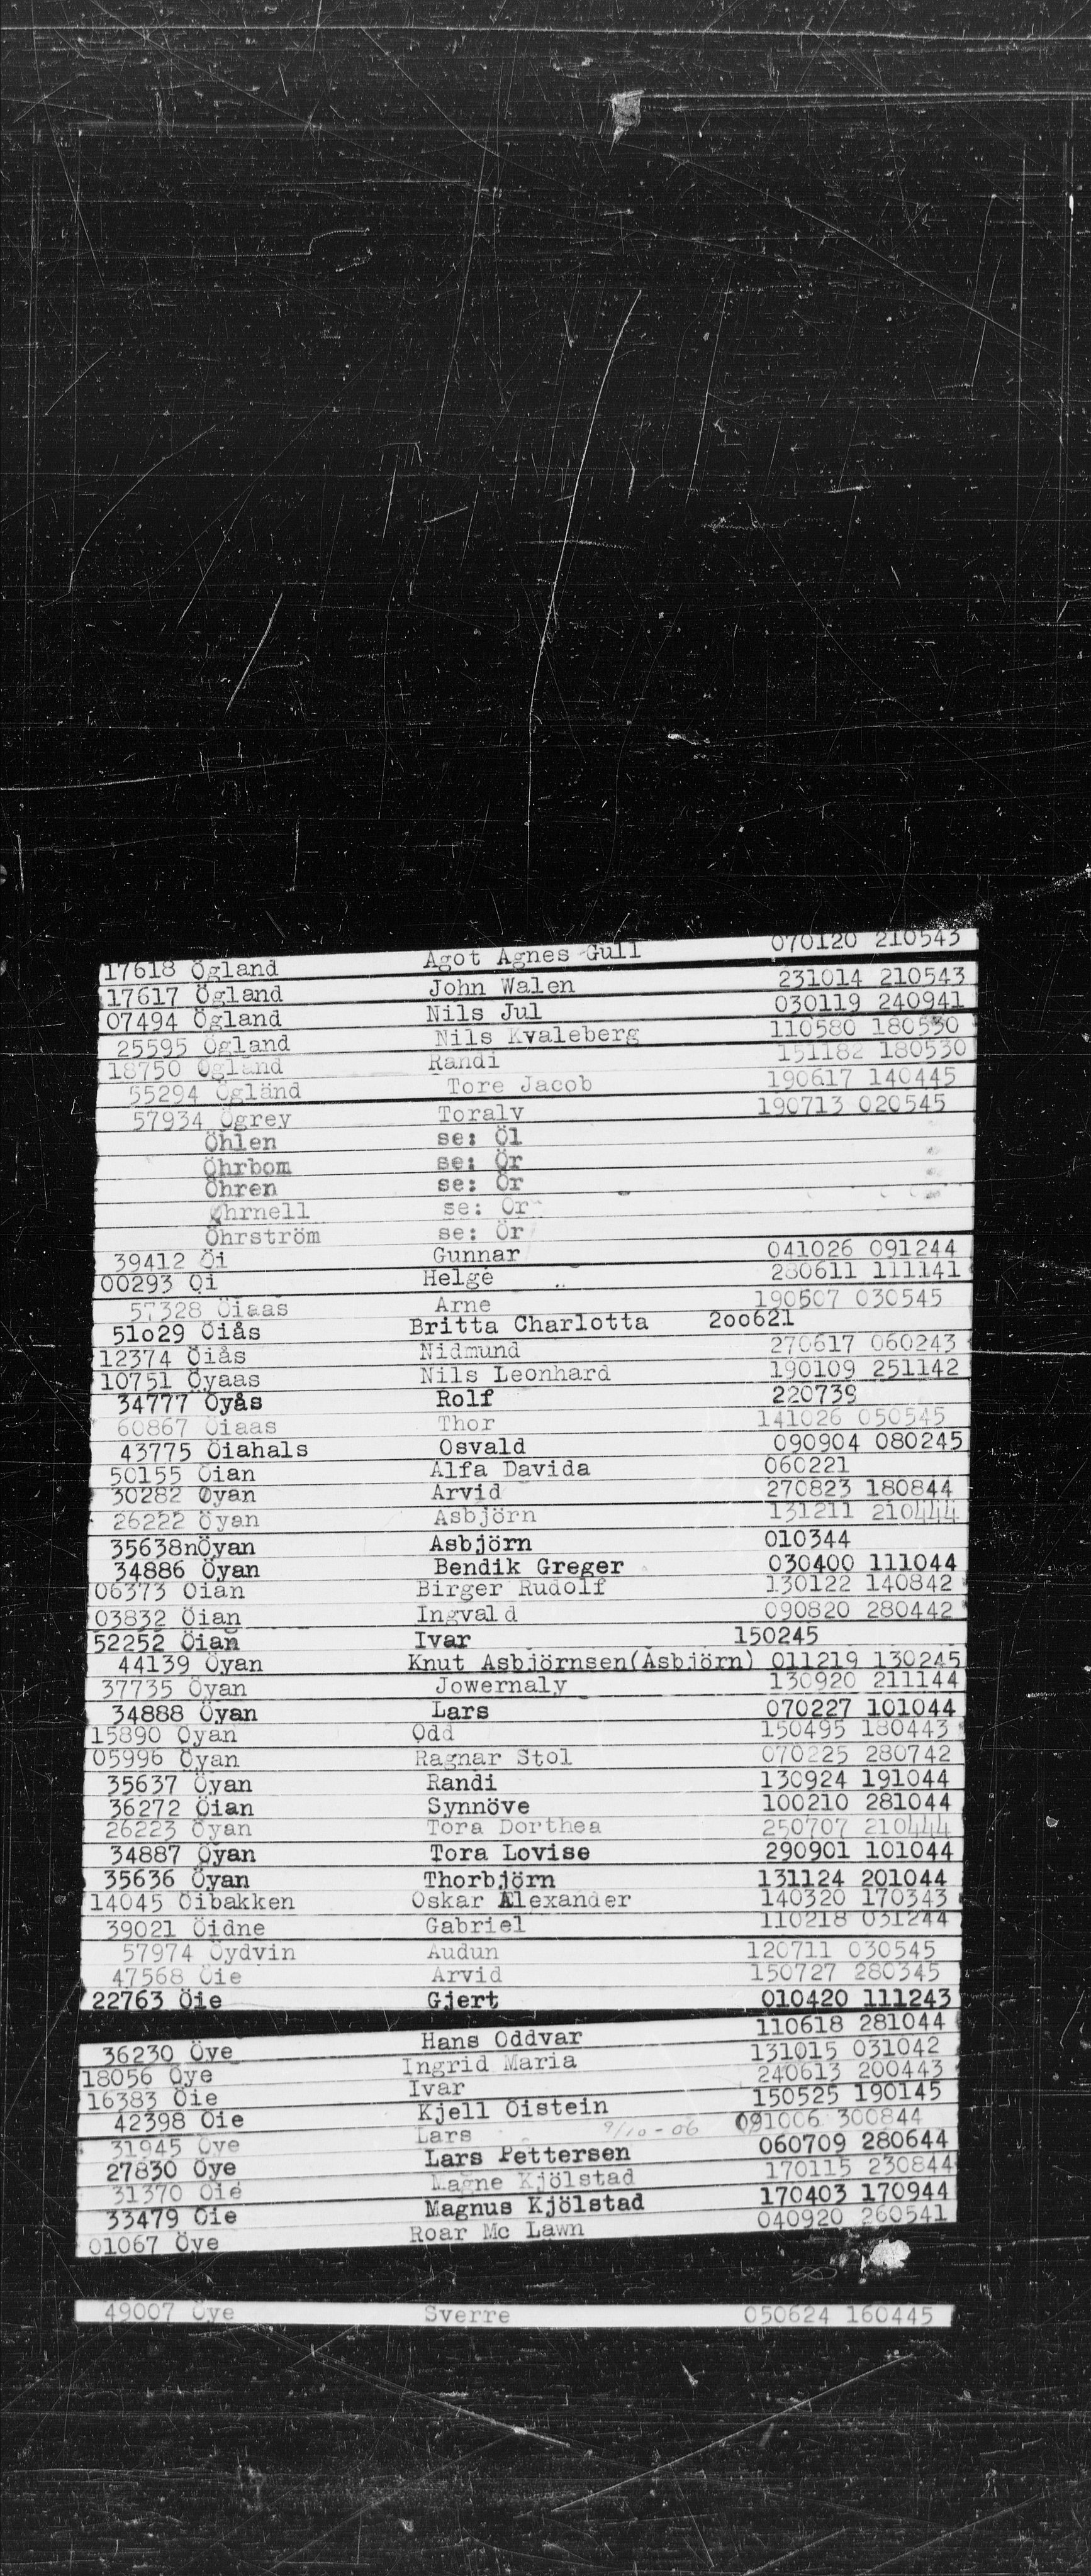 17618 Ögland Agot Agnes Gull 070120 210543
17617 Ögland John Walen 231014 210543
07494 Ögland Nils Jul 030119 240941
25595 Ögland Nils Kvaleberg 110580 180530
18750 Ögland Randi 151182 180530
55294 Ögländ Tore Jacob 190617 140445
57934 Ögrey Toralv 190713 020545
Öhlen se: Öl
Öhrbom se: Ör
Öhren se: Ör
Øhrnell se: Ör
Öhrström se: Ör
39412 Öi Gunnar 041026 091244
00293 Öi Helge 280611 111141
57328 Öiaas Arne 190507 030545
51o29 Öiås Britta Charlotta 2oo621
12374 Öiås Nidmund 270617 060243
10751 Öyaas Nils Leonhard 190109 251142
34777 Öyås Rolf 220739
60867 Öiaas Thor 141026 050545
43775 Öiahals Osvald 090904 080245
50155 Öian Alfa Davida 060221
30282 Øyan Arvid 270823 180844
26222 Öyan Asbjörn 131211 210444
35638nÖyan Asbjörn 010344
34886 Öyan Bendik Greger 030400 111044
06373 Öian Birger Rudolf 130122 140842
03832 Öian Ingvald 090820 280442
52252 Öian Ivar 150245
44139 Öyan Knut Asbjörnsen(Asbjörn) 011219 130245
37735 Öyan Jowernaly 130920 211144
34888 Öyan Lars 070227 101044
15890 Öyan Odd 150495 180443
05996 Öyan Ragnar Stol 070225 280742
35637 Öyan Randi 130924 191044
36272 Öian Synnöve 100210 281044
26223 Öyan Tora Dorthea 250707 210444
34887 Öyan Tora Lovise 290901 101044
35636 Öyan Thorbjörn 131124 201044
14045 Öibakken Oskar Alexander 140320 170343
39021 Öidne Gabriel 110218 031244
57974 Öydvin Audun 120711 030545
47568 Öie Arvid 150727 280345
22763 Öie Gjert 010420 111243
36230 Öye Hans Oddvar 110618 281044
18056 Öye Ingrid Maria 131015 031042
16383 Öie Ivar 240613 200443
42398 Öie Kjell Öistein 150525 190145
31945 Öye Lars 9/10-06 091006 300844
27830 Öye Lars Pettersen 060709 280644
31370 Öie Magne Kjölstad 170115 230844
33479 Öie Magnus Kjölstad 170403 170944
01067 Öye Roar Mc Lawn 040920 260541
49007 Öye Sverre 050624 160445